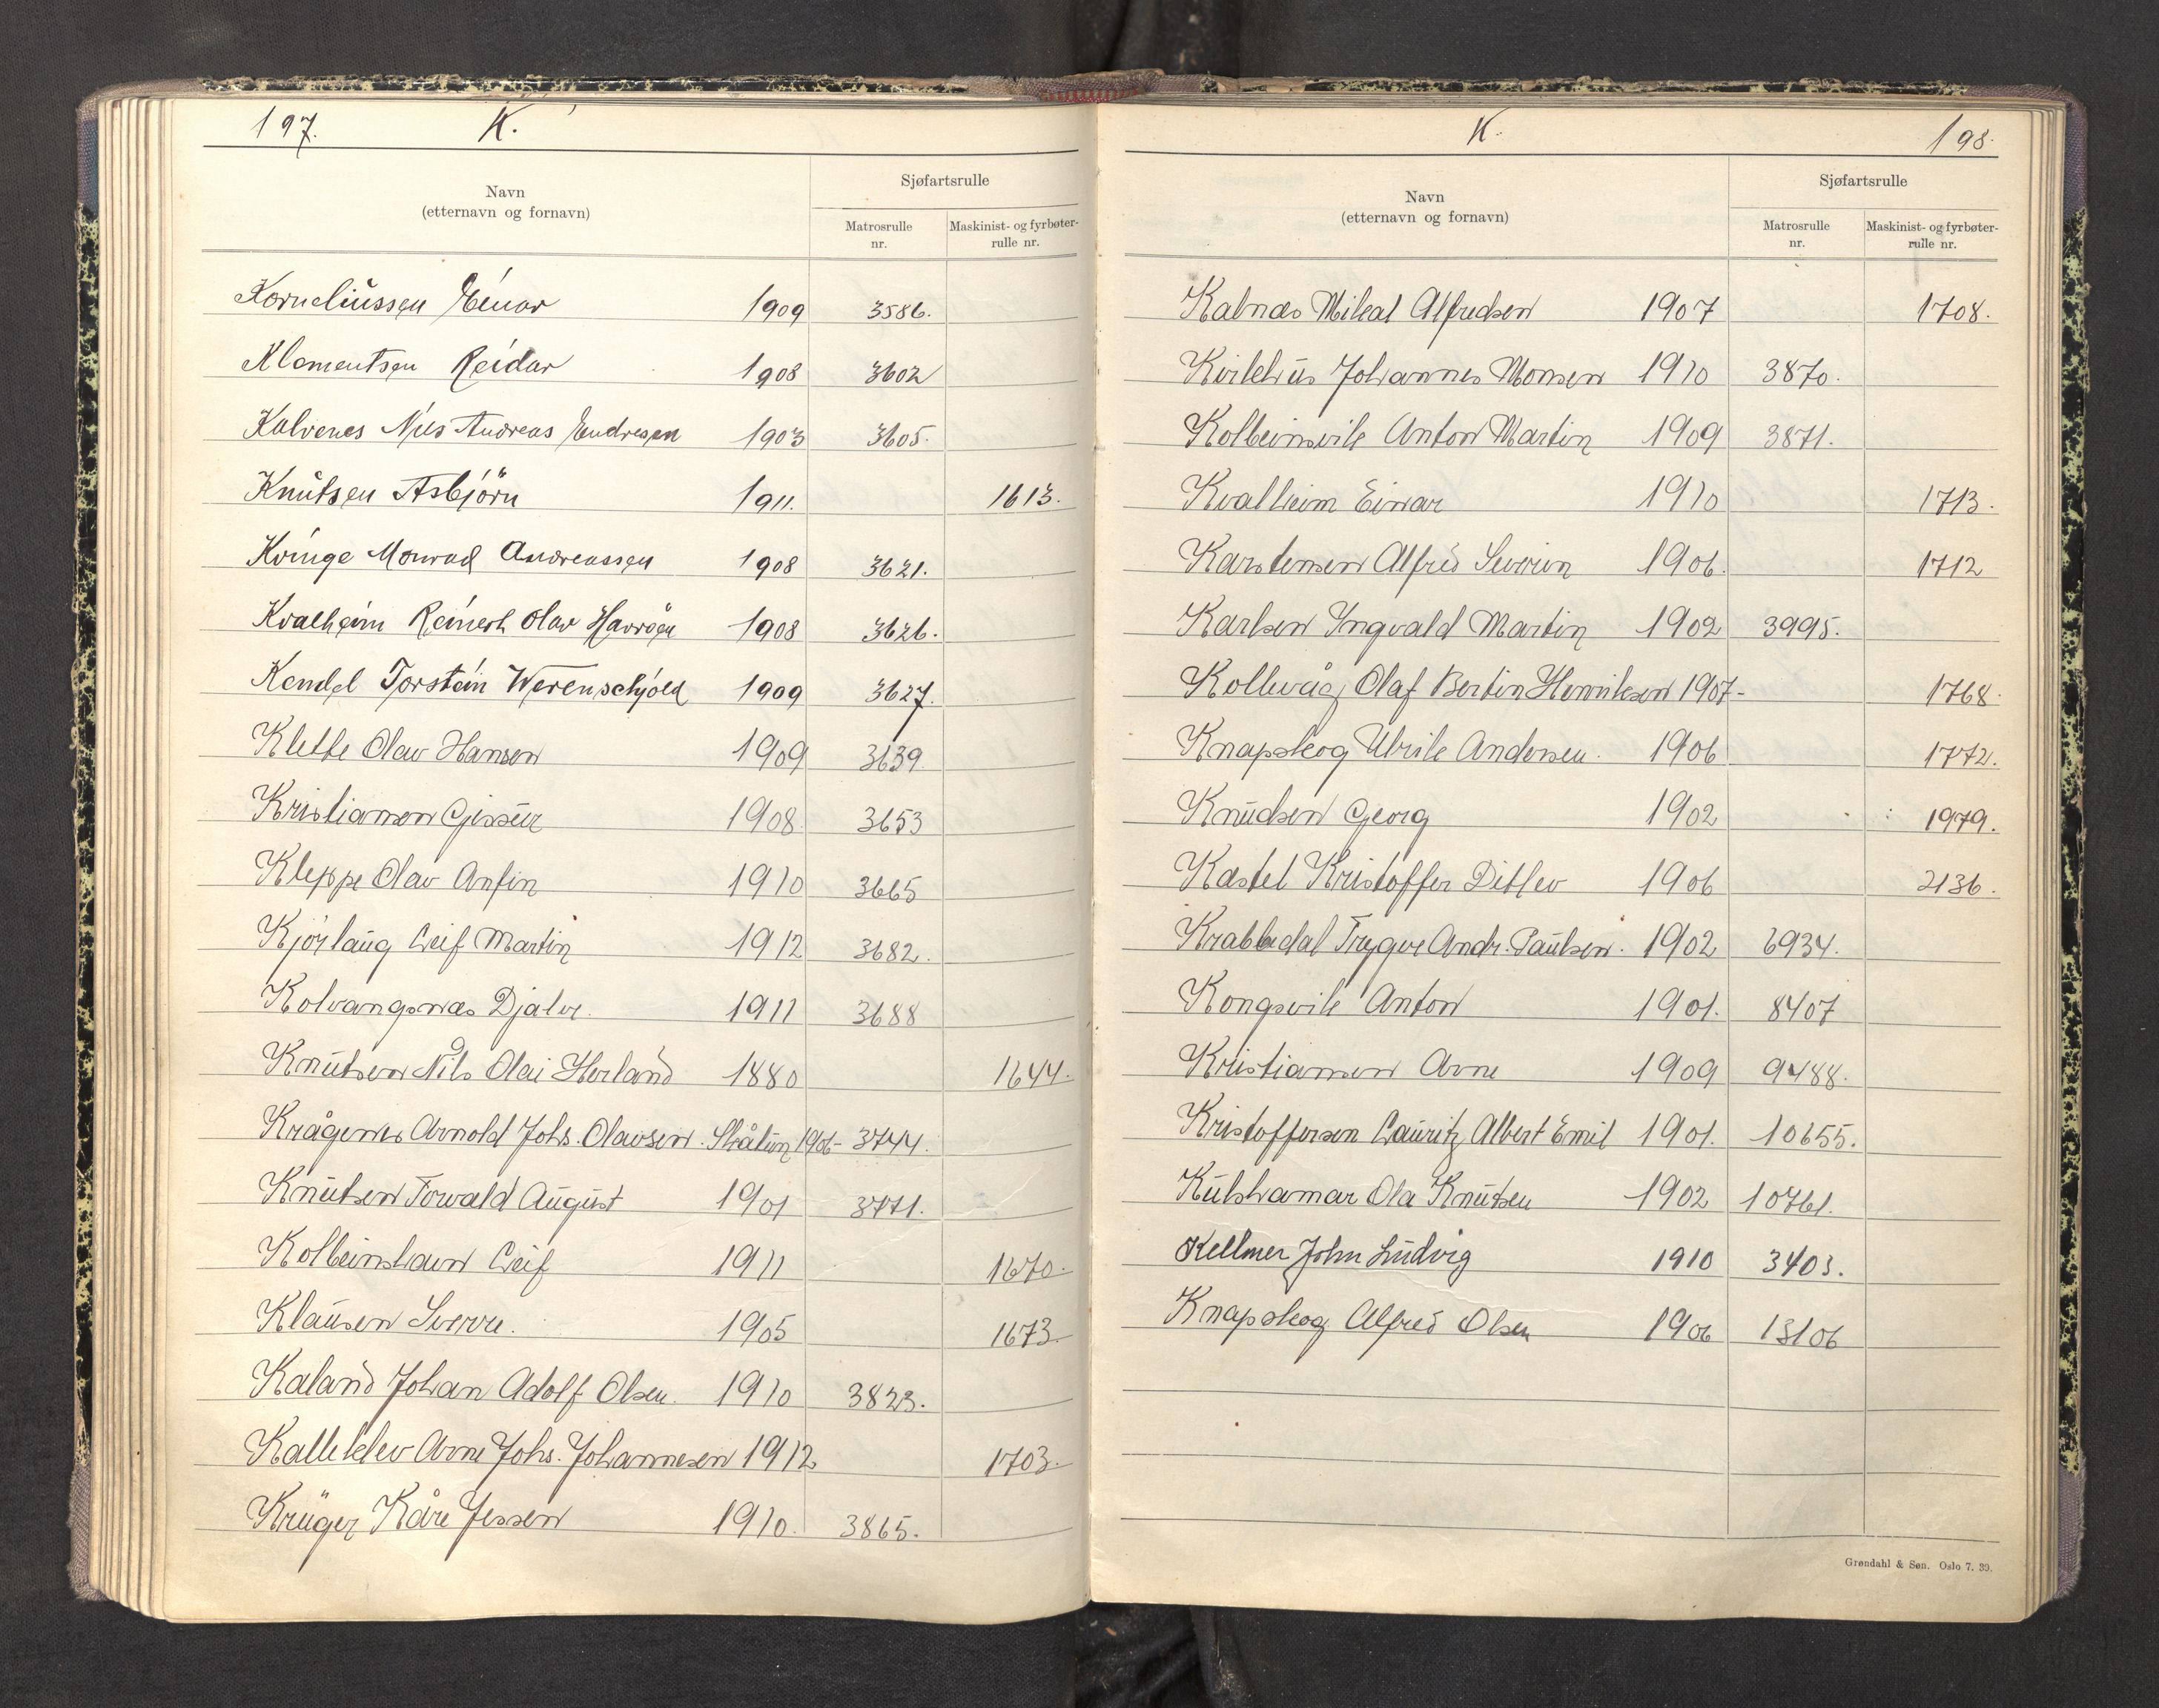 197. K.
Navn
(etternavn og fornavn)
Sjøfartsrulle
Matrosrulle
nr.
Maskinist- og fyrbøter-
rulle nr.
Korneliussen Einar 1909 3586.
Klementsen Reidar 1908 3602
Kalvenes Nils Andreas Endresen 1903 3605.
Knutsen Asbjörn 1911. 1613.
Kvinge Monrad Andreassen 1908 3621.
Kvalheim Reinert Olav Havröen 1908 3626.
Kendel Torstein Werenschjold 1909 3627.
Klette Olav Hansen 1909 3639
Kristiansen Gissur 1908 3653
Kleppe Olav Anfin 1910 3665
Kjörlaug Leif Martin 1912 3682.
Kolvangsnæs Djalve. 1911 3688
Knutsen Nils Olai Herland 1880 1644.
Krågenes Arnold Johs. Olavsen. 1906- 3744.
Knutsen Torvald August 1901 3771.
Kolbeinshavn Leif 1911 1670.
Klausen Sverre. 1905 1673.
Kaland Johan Adolf Olsen. 1910 3823.
Kalleklev Arne Johs. Johannesen 1912 1703.
Krüger Kåre Jessen 1910. 3865.
K. 198.
Navn
(etternavn og fornavn)
Sjøfartsrulle
Matrosrulle
nr.
Maskinist- og fyrbøter-
rulle nr.
Kalnæs Mikal Alfredsen 1907 1708.
Johannes Monsen 1910 3870.
Kolbeinsvik Anton Martin 1909 3871.
Kvalheim Einar 1910 1713.
Karstensen Alfred Severin 1906. 1712
Karlsen Yngvald Martin 1902 3995.
Kollevåg Olaf Bertin Henriksen 1907- 1768.
Knapskog Ulrik Andersen. 1906 1772.
Knudsen Georg 1902 1979.
Kastel Kristoffer Ditlev 1906 2136.
Krabbedal Trygve Andr. Paulsen. 1902 6934.
Kongsvik Anton 1901. 8407
Kristiansen Arne 1909 9488.
Kristoffersen Lauritz Albert Emil 1901. 10655.
Kulshamar Ola Knutsen 1902 10761.
Kellmer John Ludvig 1910 3403.
Knapskog Alfred Olsen 1906 13106
Grøndahl & Søn. Oslo 7. 39.